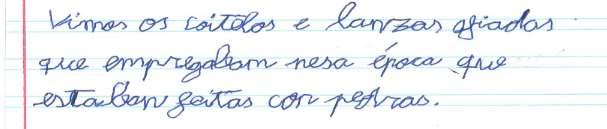 Vimos os coitelos e lanzas afiadas
que empregabam nesa época que
estaban feitas con pedras.